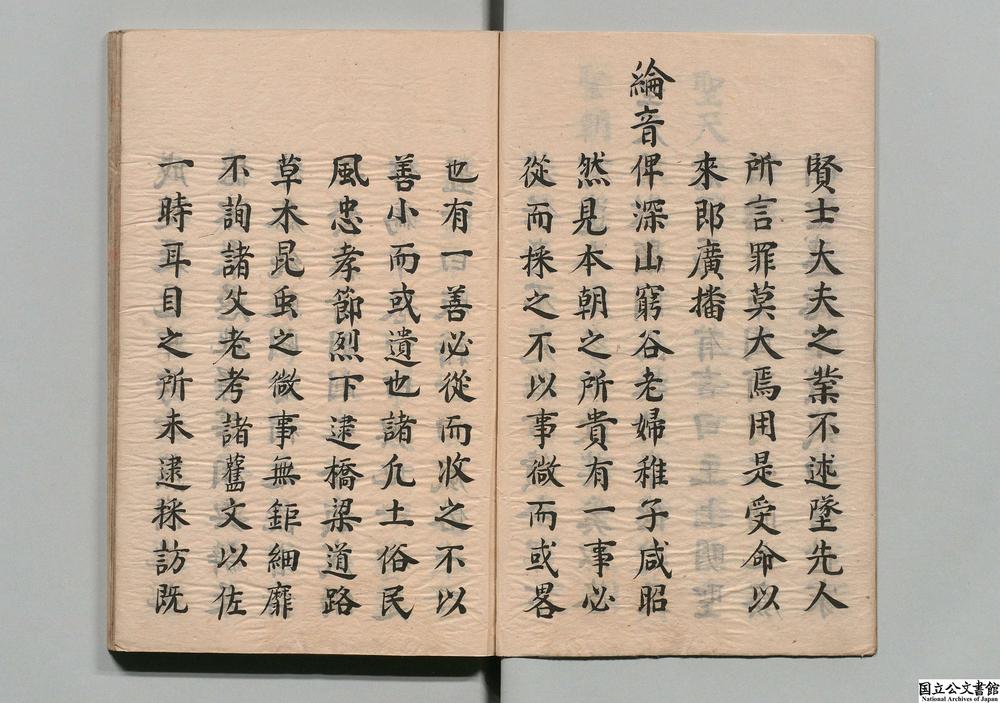 賢士大夫之業不述墜先人
所言罪莫大焉用是受命以
來郎廣播
綸音俾深山窮谷老婦稚子咸昭
然見本朝之所貴有一事必
從而採之不以事微而或畧
也有一善必從而收之不以
善小而或遺也諸凢土俗民
風忠孝節烈下逮橋梁道路
草木昆虫之微事無鉅細靡
不詢諸父老考諸舊文以佐
一時耳目之所未逮採訪既
国立公文書館
National Archives of Japan